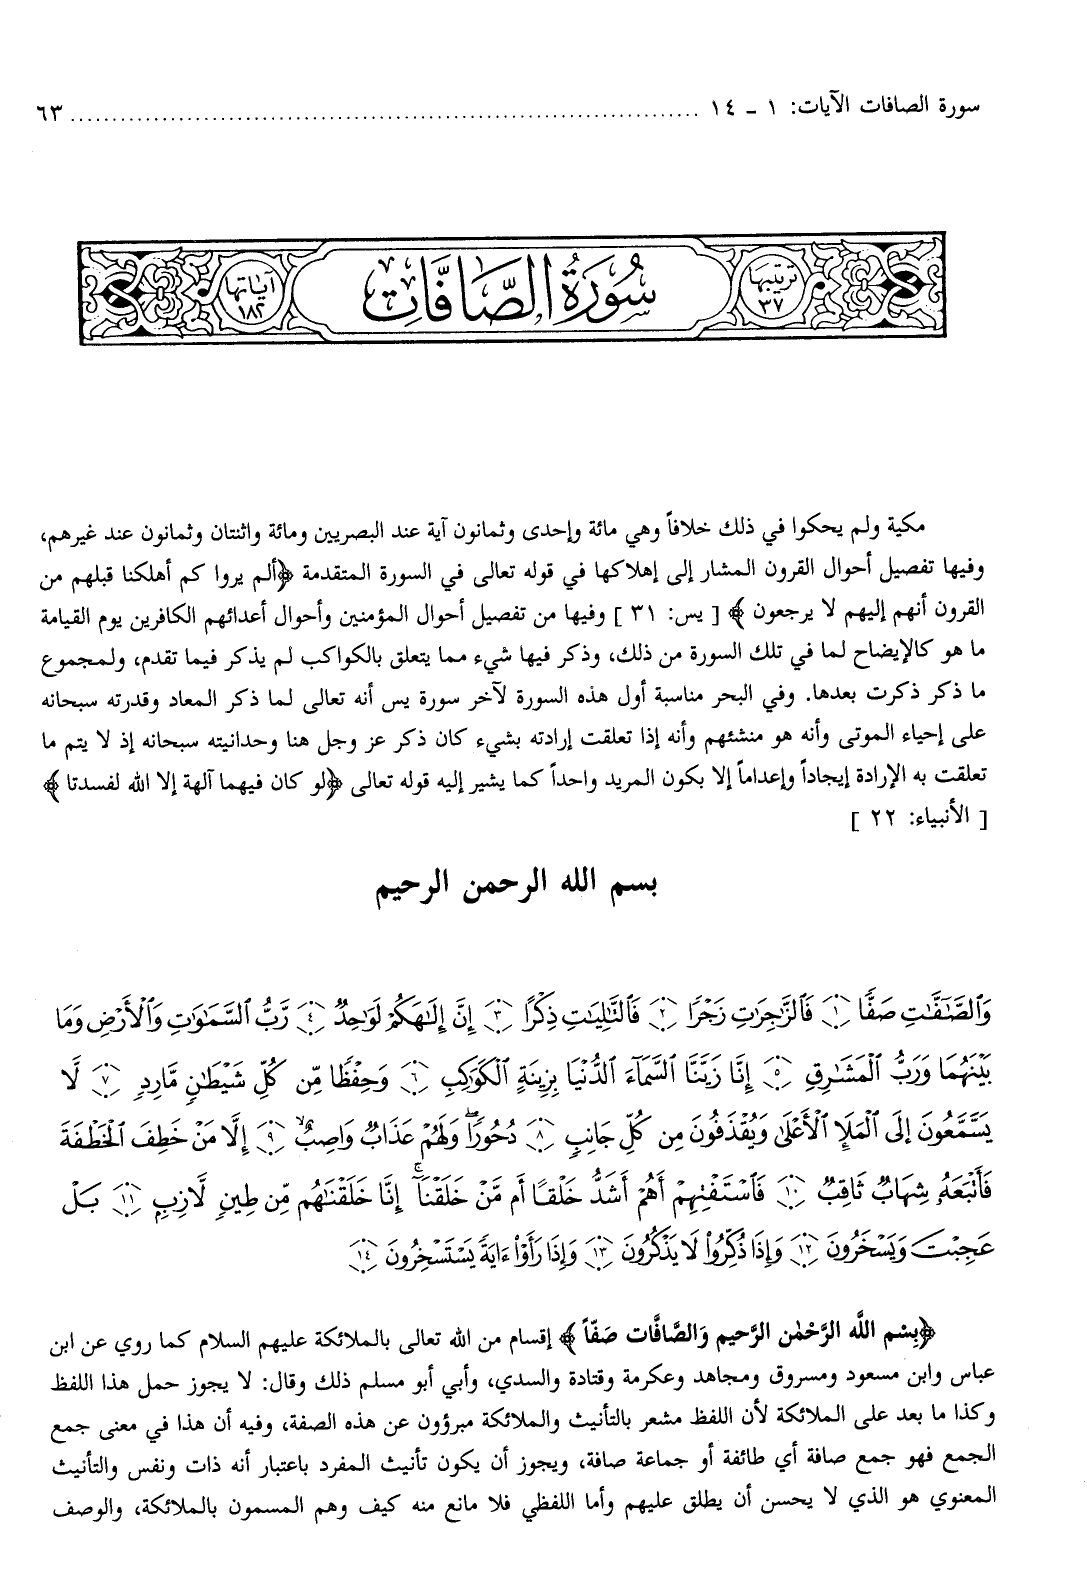 سورة الصافات الآيات: ١ - ١٤ ........................................................................ ٦٣
ترتيبها
٣٧
سُورَةُ الصَّافَّاتِ
آيَاتها
١٨٢
مكية ولم يحكوا في ذلك خلافاً وهي مائة وإحدى وثمانون آية عند البصريين ومائة واثنتان وثمانون عند غيرهم،
وفيها تفصيل أحوال القرون المشار إلى إهلاكها في قوله تعالى في السورة المتقدمة ﴿ألم يروا كم أهلكنا قبلهم من
القرون أنهم إليهم لا يرجعون﴾ [ يس: ٣١ ] وفيها من تفصيل أحوال المؤمنين وأحوال أعدائهم الكافرين يوم القيامة
ما هو كالإيضاح لما في تلك السورة من ذلك، وذكر فيها شيء مما يتعلق بالكواكب لم يذكر فيما تقدم، ولمجموع
ما ذكر ذكرت بعدها. وفي البحر مناسبة أول هذه السورة لآخر سورة يس أنه تعالى لما ذكر المعاد وقدرته سبحانه
على إحياء الموتى وأنه هو منشئهم وأنه إذا تعلقت إرادته بشيء كان ذكر عز وجل هنا وحدانيته سبحانه إذ لا يتم ما
تعلقت به الإرادة إيجاداً وإعداماً إلا بكون المريد واحداً كما يشير إليه قوله تعالى ﴿لو كان فيهما آلهة إلا الله لفسدتا﴾
[ الأنبياء: ٢٢ ]
بسم الله الرحمن الرحيم
وَٱلصَّٰٓفَّٰتِ صَفًّا ١ فَٱلزَّٰجِرَٰتِ زَجْرًا ٢ فَٱلتَّٰلِيَٰتِ ذِكْرًا ٣ إِنَّ إِلَٰهَكُمْ لَوَٰحِدٌ ٤ رَّبُّ ٱلسَّمَٰوَٰتِ وَٱلْأَرْضِ وَمَا
بَيْنَهُمَا وَرَبُّ ٱلْمَشَٰرِقِ ٥ إِنَّا زَيَّنَّا ٱلسَّمَآءَ ٱلدُّنْيَا بِزِينَةٍ ٱلْكَوَاكِبِ ٦ وَحِفْظًا مِّن كُلِّ شَيْطَٰنٍ مَّارِدٍ ٧ لَّا
يَسَّمَّعُونَ إِلَى ٱلْمَلَإِ ٱلْأَعْلَىٰ وَيُقْذَفُونَ مِن كُلِّ جَانِبٍ ٨ دُحُورًا ۖ وَلَهُمْ عَذَابٌ وَاصِبٌ ٩ إِلَّا مَنْ خَطِفَ ٱلْخَطْفَةَ
فَأَتْبَعَهُۥ شِهَابٌ ثَاقِبٌ ١٠ فَٱسْتَفْتِهِمْ أَهُمْ أَشَدُّ خَلْقًا أَم مَّنْ خَلَقْنَآ ۚ إِنَّا خَلَقْنَٰهُم مِّن طِينٍ لَّازِبٍ ١١ بَلْ
عَجِبْتَ وَيَسْخَرُونَ ١٢ وَإِذَا ذُكِّرُوا۟ لَا يَذْكُرُونَ ١٣ وَإِذَا رَأَوْا۟ ءَايَةً يَسْتَسْخِرُونَ ١٤
﴿بِسْم اللَّه الرَّحْمٰن الرَّحيم وَالصَّافَّات صَفّاً﴾ إقسام من الله تعالى بالملائكة عليهم السلام كما روي عن ابن
عباس وابن مسعود ومسروق ومجاهد وعكرمة وقتادة والسدي، وأبي أبو مسلم ذلك وقال: لا يجوز حمل هذا اللفظ
وكذا ما بعد على الملائكة لأن اللفظ مشعر بالتأنيث والملائكة مبرؤون عن هذه الصفة، وفيه أن هذا في معنى جمع
الجمع فهو جمع صافة أي طائفة أو جماعة صافة، ويجوز أن يكون تأنيث المفرد باعتبار أنه ذات ونفس والتأنيث
المعنوي هو الذي لا يحسن أن يطلق عليهم وأما اللفظي فلا مانع منه كيف وهم المسمون بالملائكة، والوصف